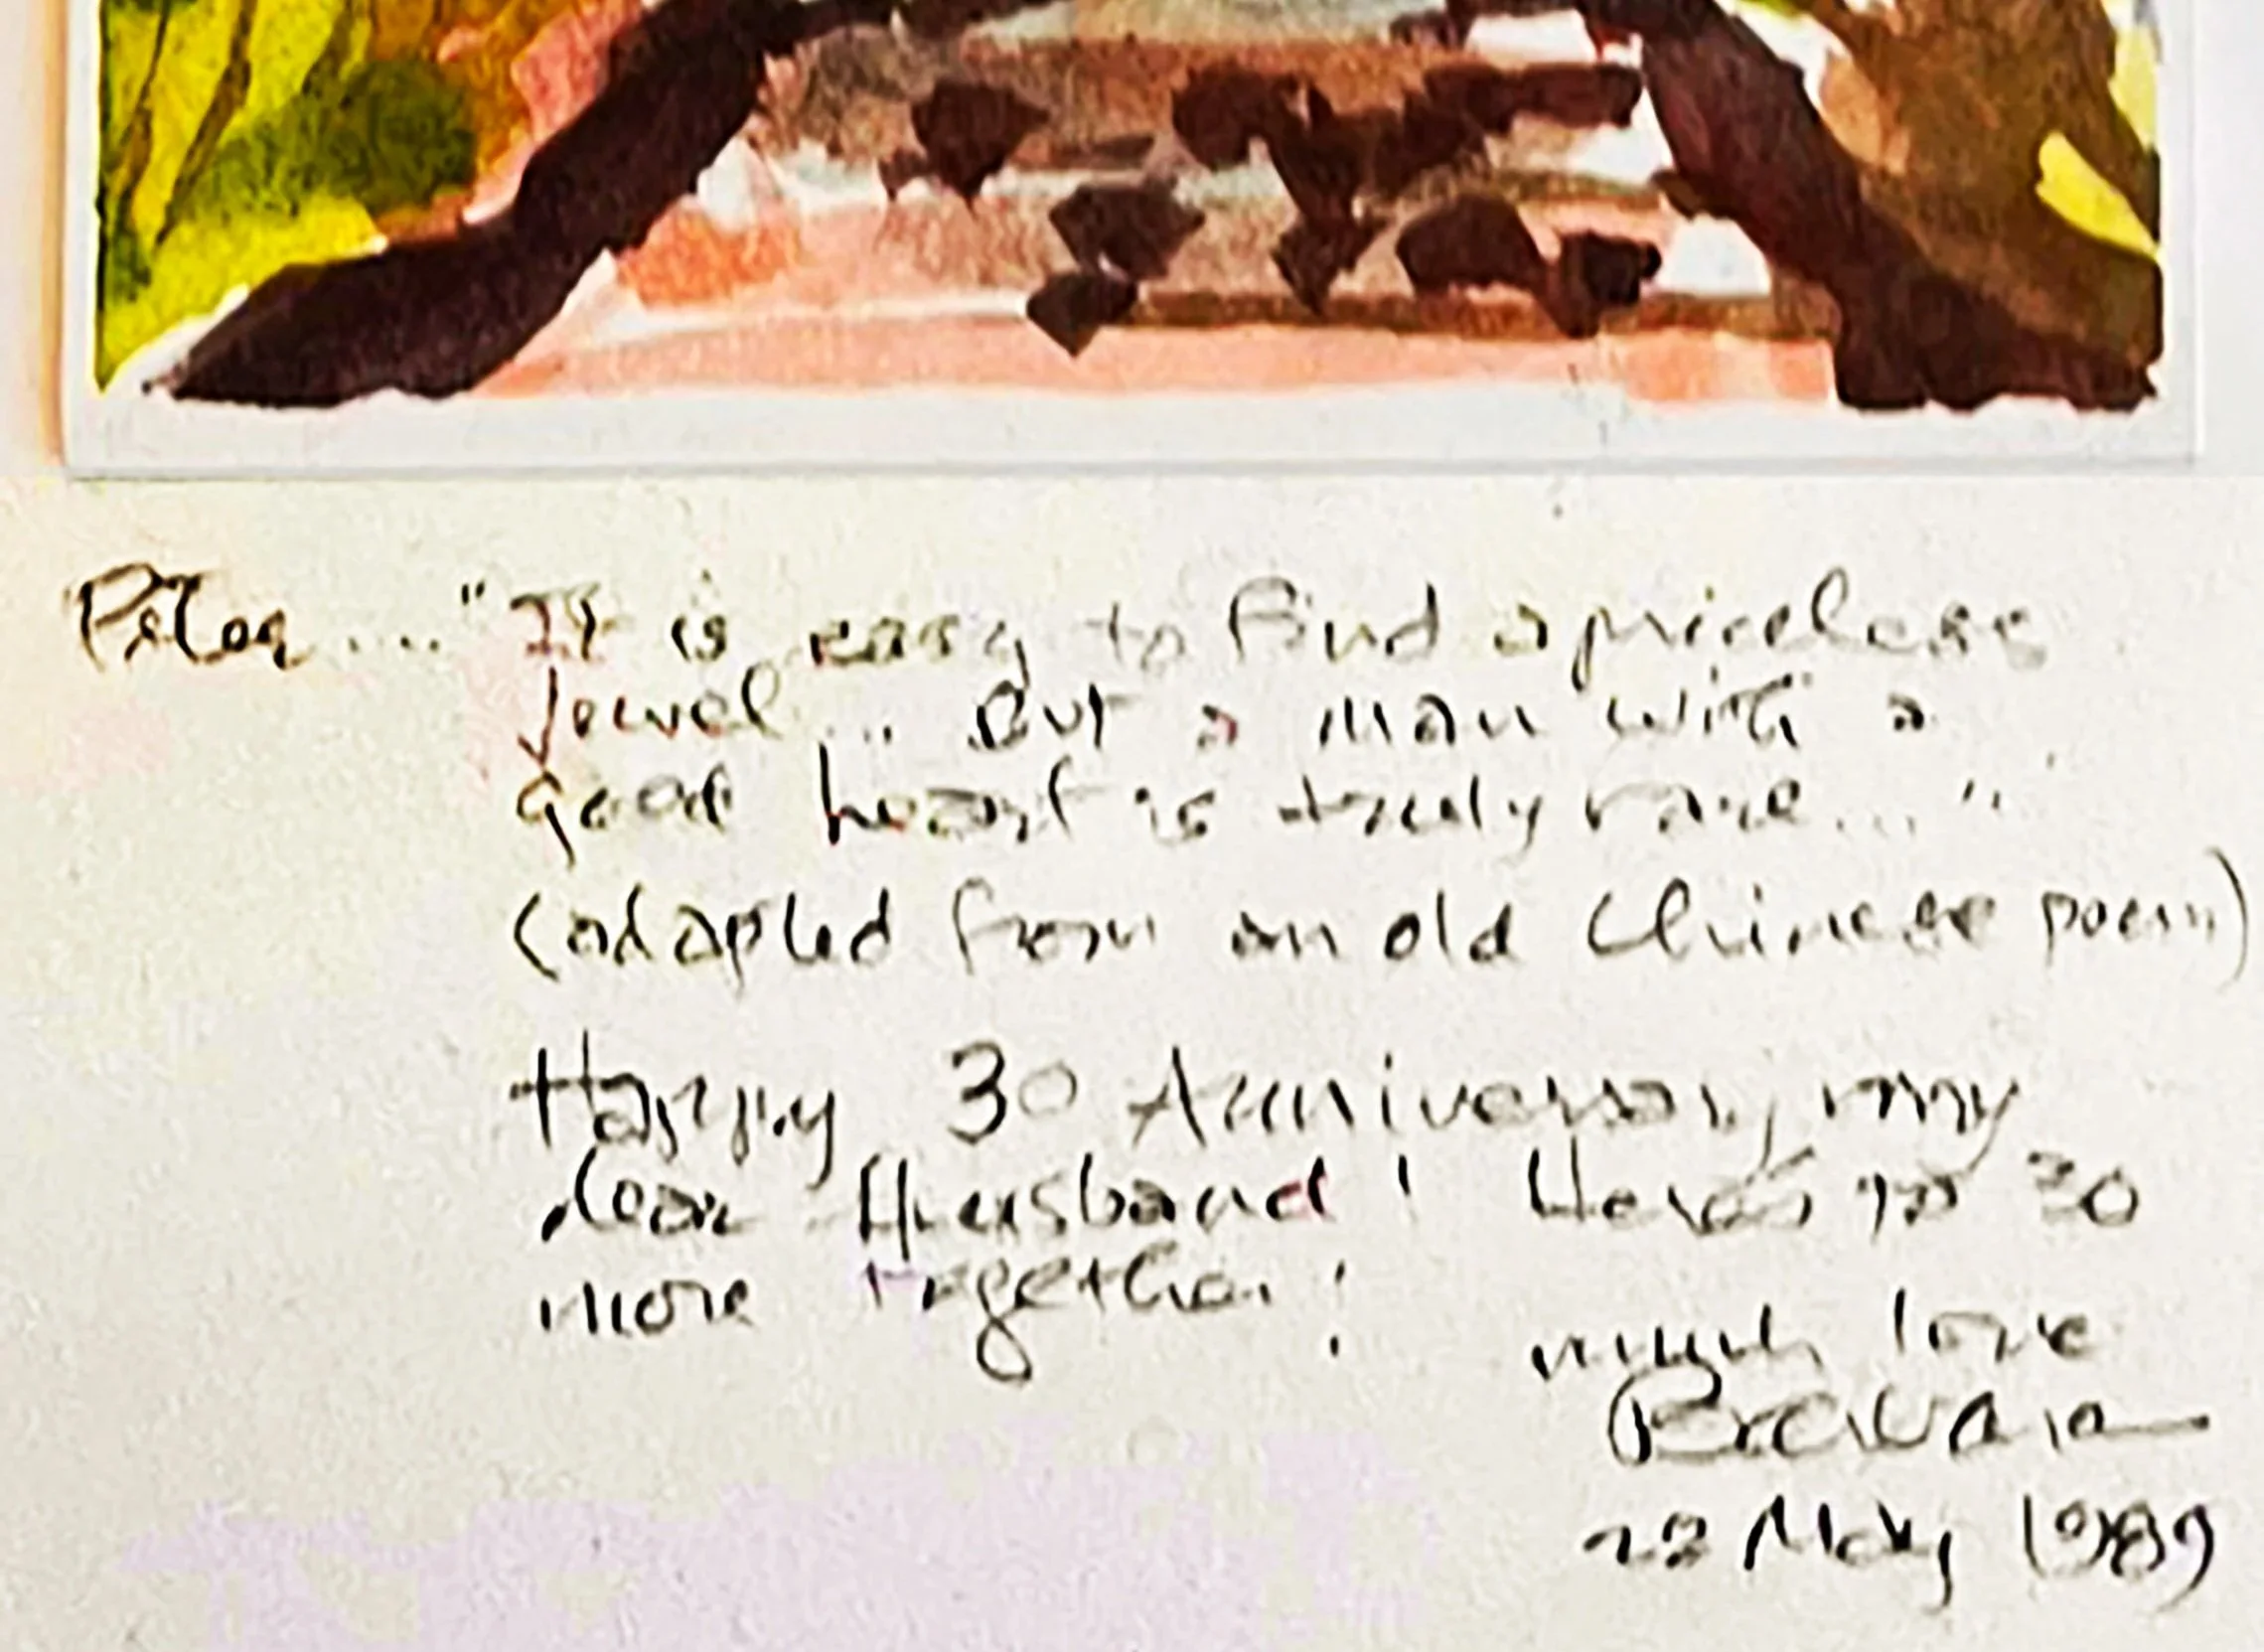 Peter .... "It is easy to find a priceless
Jewel... But a man with a
good heart is truly rare..."
(adapted from an old Chinese poem)
Happy 30 Anniversary my
dear Husband! Here's to 30
more together!
much love
22 May 1989